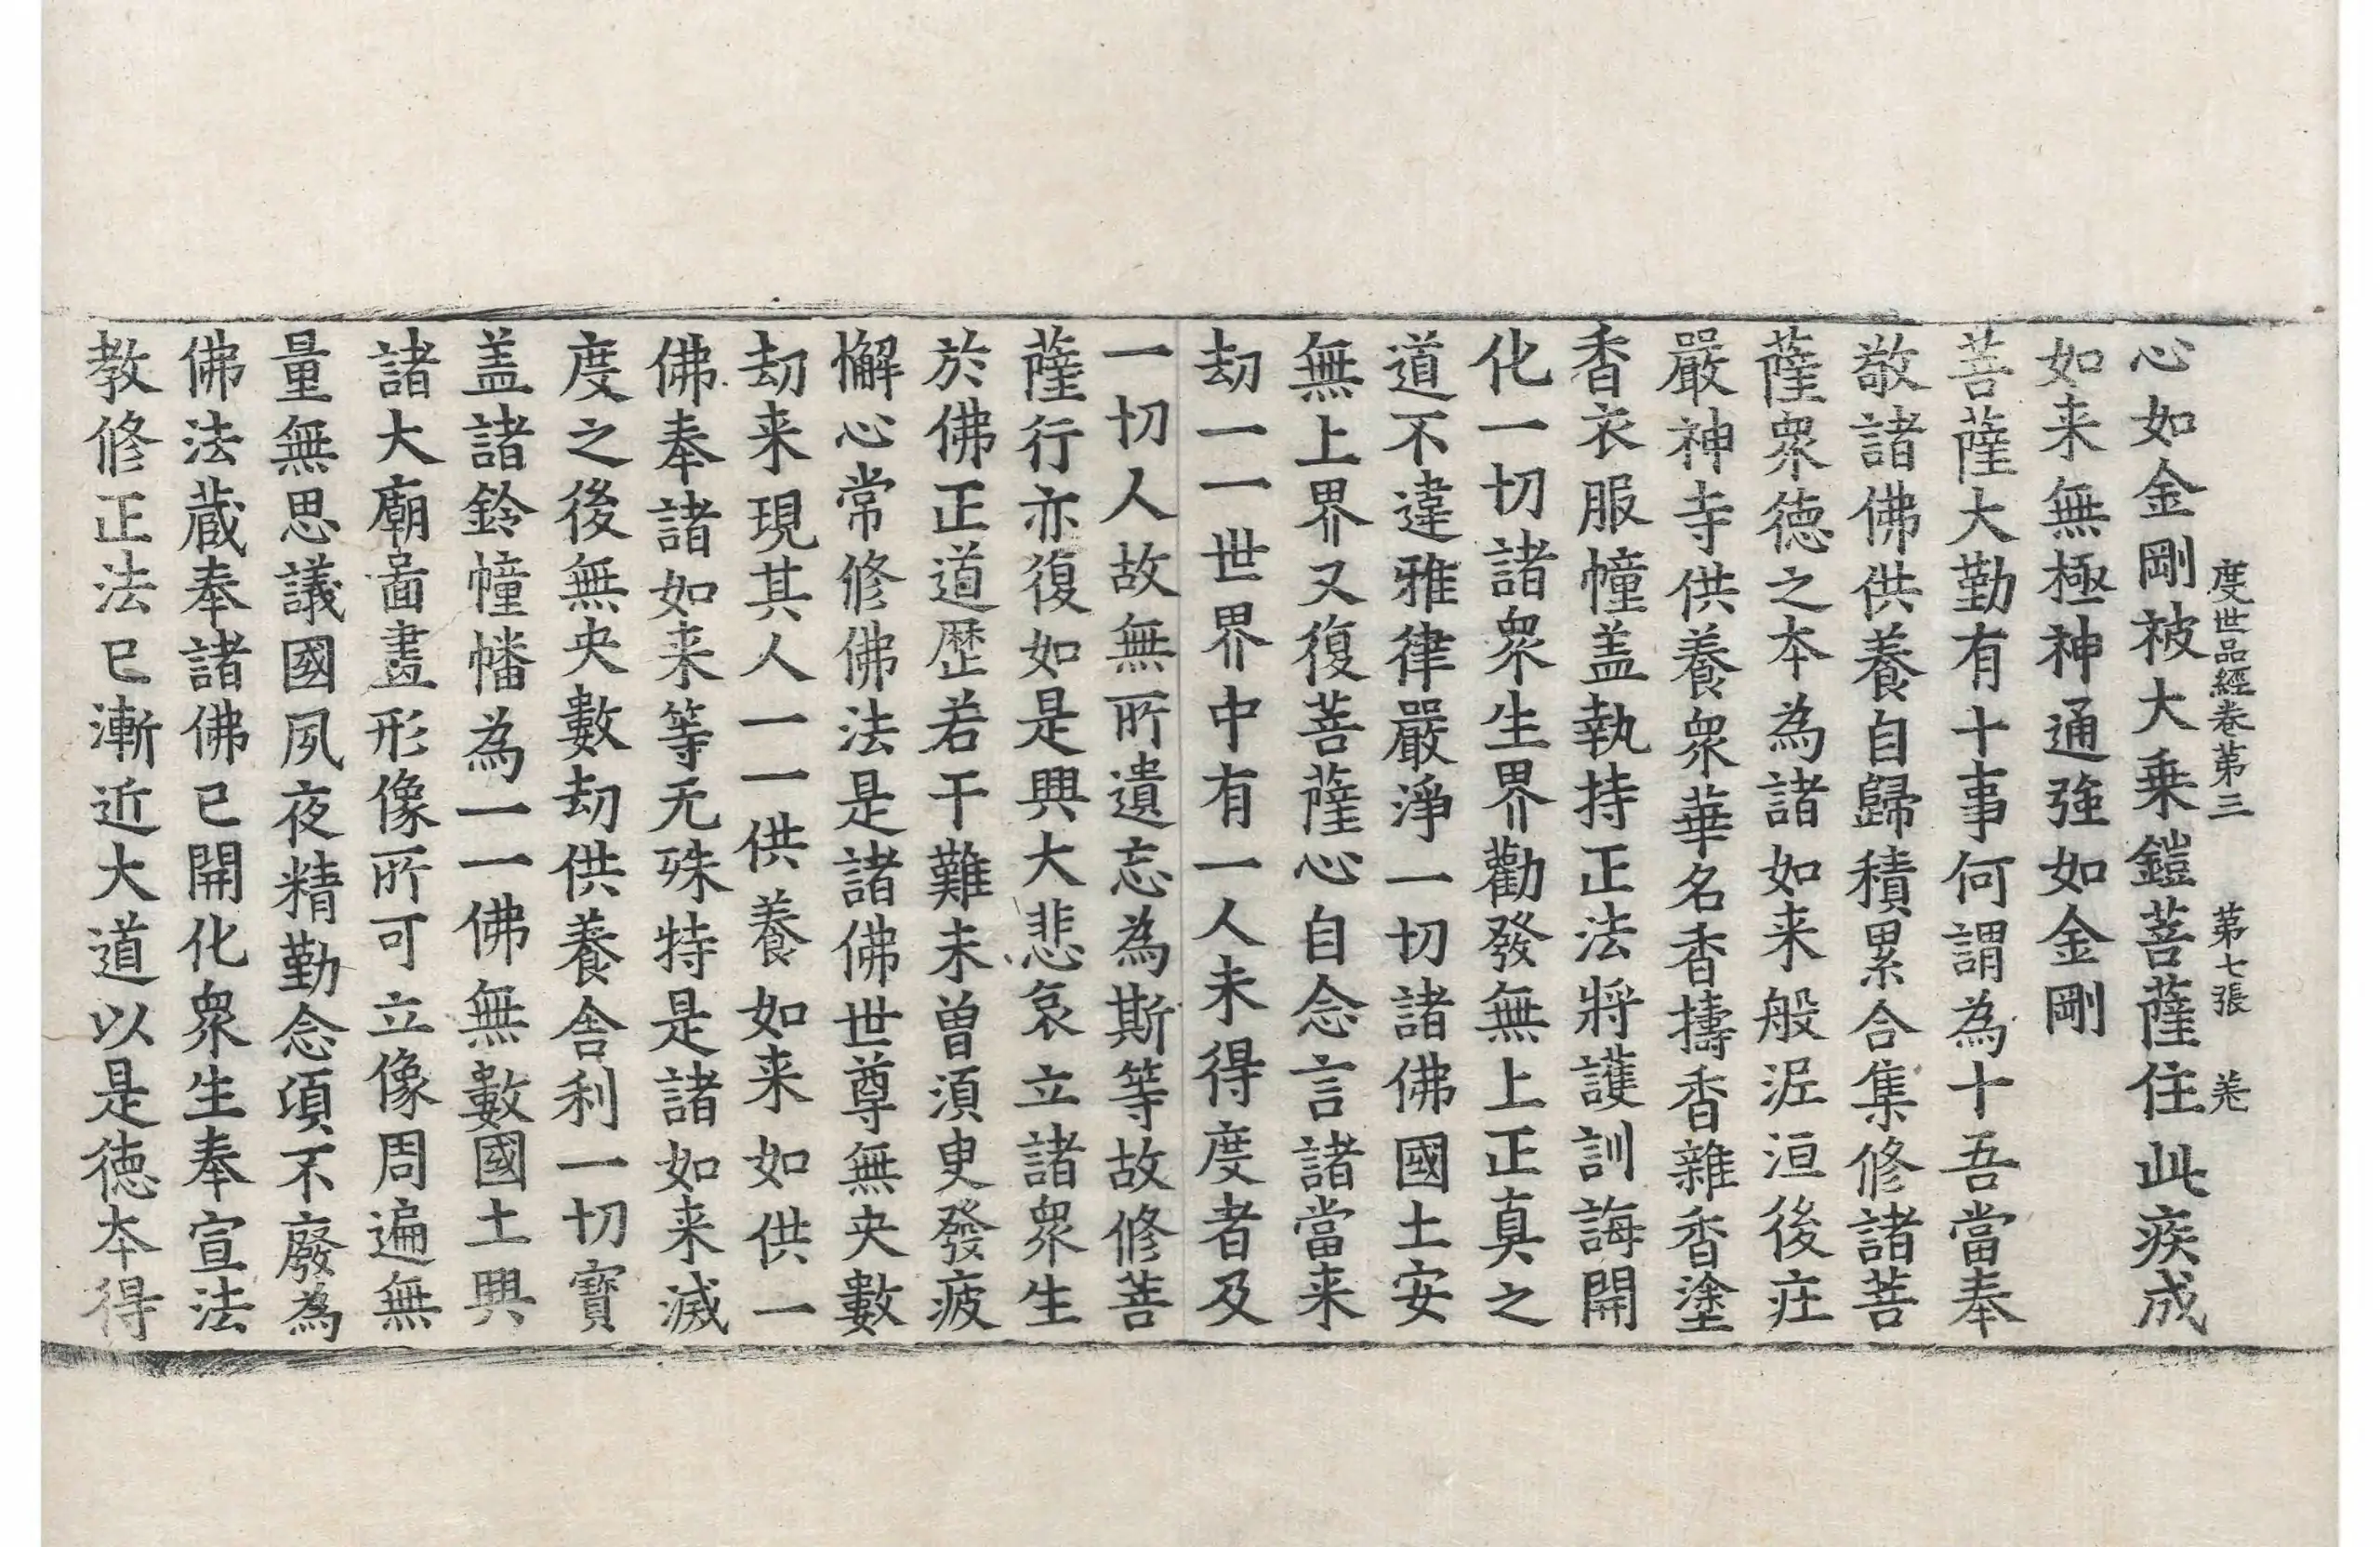 度世品經卷第三 第七張 羌
心如金剛被大乗鎧菩薩住此疾成
如来無極神通強如金剛
菩薩大勤有十事何謂為十吾當奉
敬諸佛供養自歸積累合集修諸菩
薩衆徳之本為諸如来般泥洹後庄
嚴神寺供養衆華名香擣香雜香塗
香衣服幢盖執持正法將護訓誨開
化一切諸衆生界勸發無上正真之
道不違雅律嚴淨一切諸佛國土安
無上界又復菩薩心自念言諸當来
劫一一世界中有一人未得度者及
一切人故無所遺忘為斯等故修菩
薩行亦復如是興大悲哀立諸衆生
於佛正道歴若干難未曽湏臾發疲
懈心常修佛法是諸佛世尊無央數
劫来現其人一一供養如来如供一
佛奉諸如来等无殊特是諸如来滅
度之後無央數劫供養舎利一切寳
盖諸鈴幢幡為一一佛無數國土興
諸大廟啚畫形像所可立像周遍無
量無思議國夙夜精勤念湏不廢為
佛法蔵奉諸佛已開化衆生奉宣法
教修正法已漸近大道以是徳本得